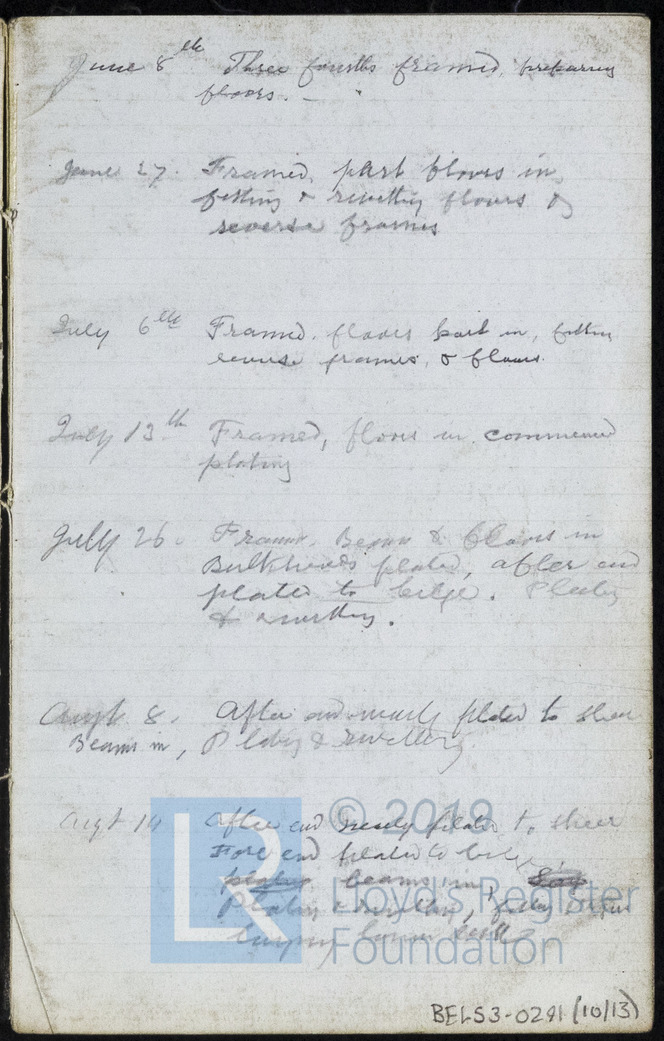 June 8th Three fourths framed, preparing
floors. —
June 27. Framed, part floors in,
fitting & rivetting floors &
reverse frames
July 6th Framed, floors part in, fitting
reverse frames, & floors.
July 13th Framed, floors in, commenced
plating
July 26. Frames, Beams & floors in
Bulkheads plated, after end
plated to bilge. Plating
& rivetting.
Augt 8. After end nearly plated to sheer
Beams in, Plating & rivetting.
Augt 14 After end nearly plated to sheer
Fore end plated to bilge,
plating beams in,
Plating & rivetting,
laying
© 2019
Lloyd's Register
Foundation
LR
BELS3-0291 (10/13)